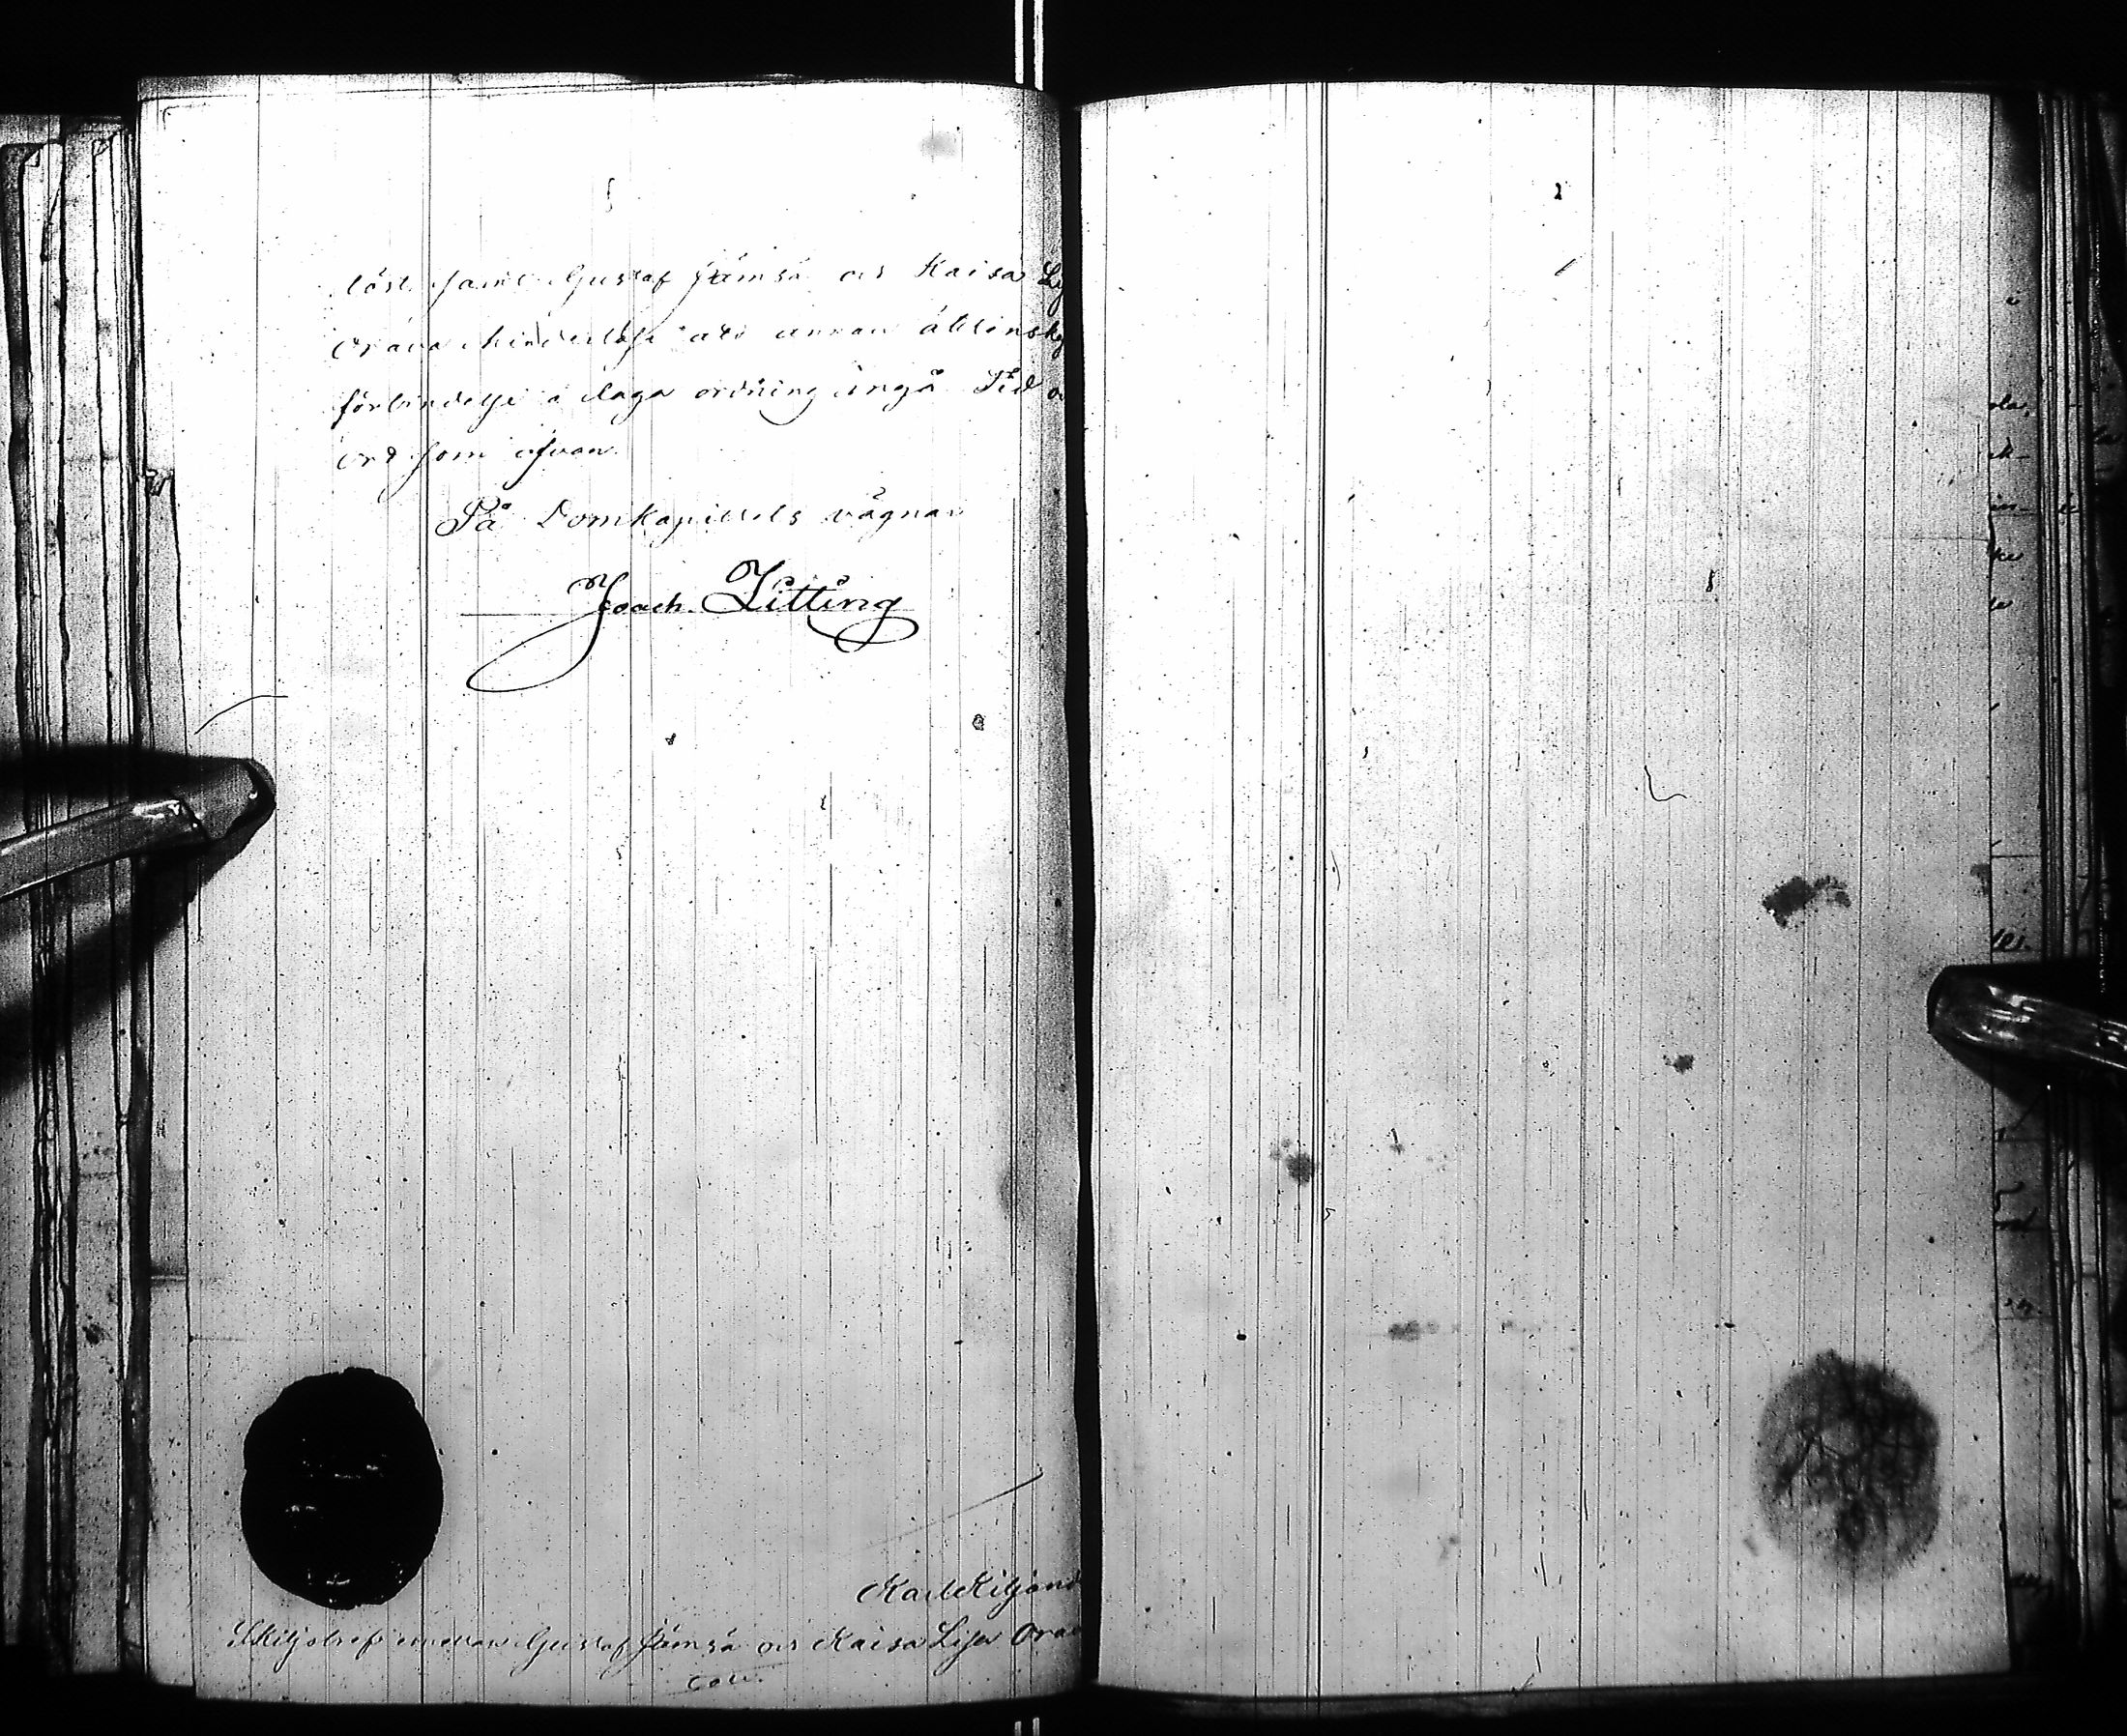 löst samt Gustaf Jämsä och Kaisa
Orava hinderlöst att annan äktensk
förbindelse i laga ordning ingå Tid o
ort som ofvan.
På Domkapitlets vägnar
Joach. Zitting
Karl Kiljand
Skiljobref emellan Gustaf Jämsä och Kaisa Lisa Ora